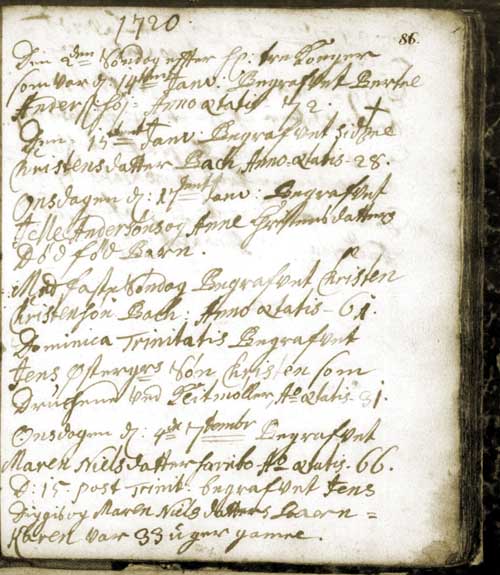 1720.
86.
Den 2den Søndag effter hp: tre Konger
som var d. 14ten Janv: Begrafvet Bertel
Anders: Høj: Anno ætatis 72.
Den 15de Janv: Begrafvet Sidzele
Christensdatter Bach, Anno ætatis 28.
Onsdagen d: 17tent Janv: Begrafvet
Andersøns og Anne Christensdatters
Død fød Barn.
Mid faste Søndag Begrafvet Christen
Christensøn Bach: Anno ætatis - 61.
Dominica Trinitatis Begrafvet
Jens Søn Christen som
Druchene ved Klitmøller, Ao ætatis 31.
Onsdagen d: 4de 7tembr Begrafvet
Maren Nielsdatter Ao ætatis. 66.
D: 15. post Trinit: begrafvet Jens
og Maren Niels datters barn =
Karen var 33 uger gamel.